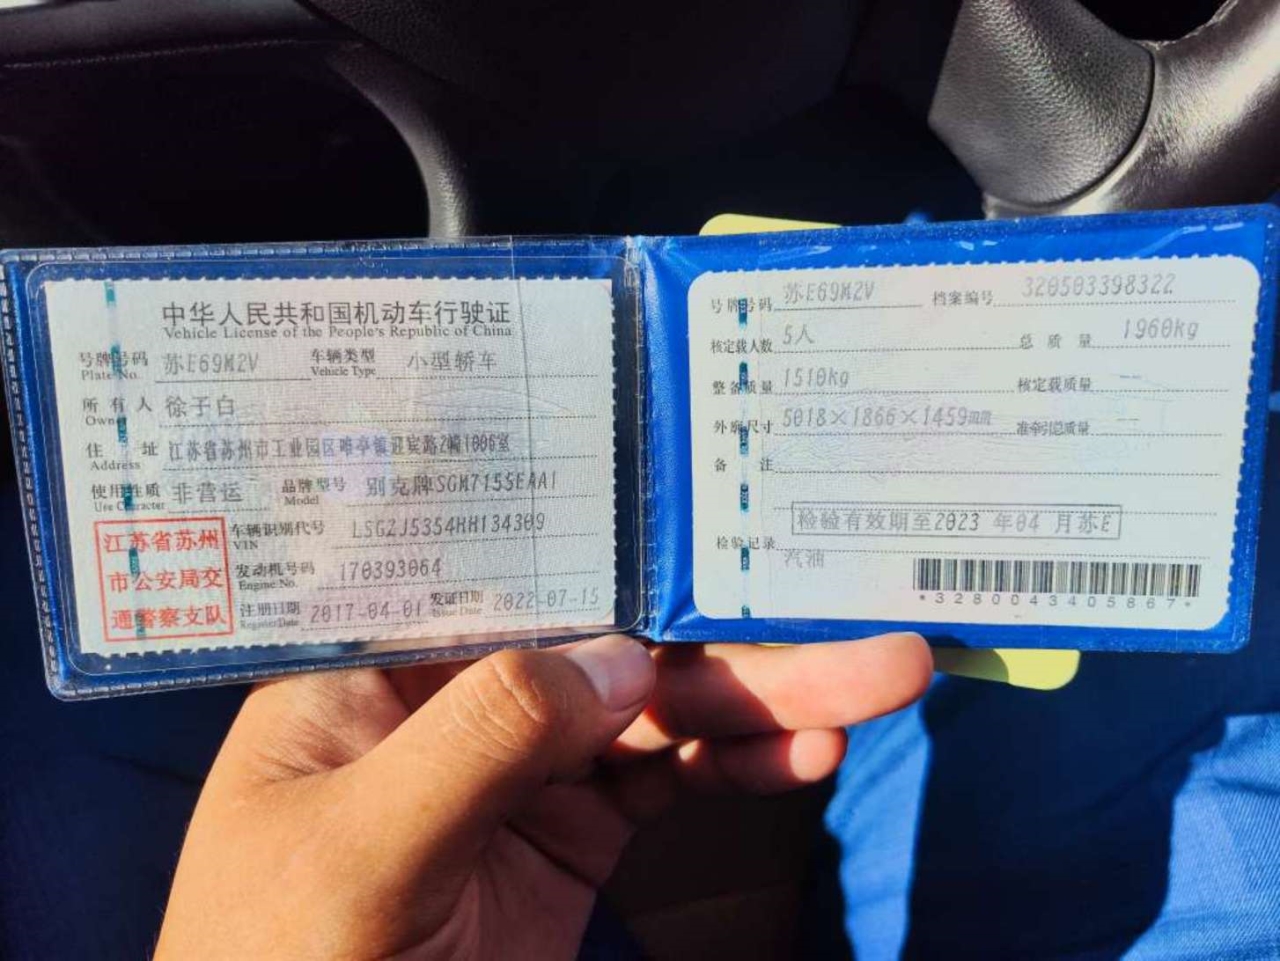 中华人民共和国机动车行驶证
Vehicle License of the People's Republic of China
号牌号码 苏E69M2V 车辆类型 小型轿车
Plate No. Vehicle Type
所有人 徐子白
Owner
住址 江苏省苏州市工业园区唯亭镇迎宾路2幢1006室
Address
使用性质 非营运 品牌型号 别克牌SGM7155EAA1
Use Character Model
江苏省苏州
市公安局交
通警察支队
车辆识别代号 LSG2J5354HH134309
VIN
发动机号码 170393064
Engine No.
注册日期 2017-04-01 发证日期 2022-07-15
Register Date Issue Date
号牌号码 苏E69M2V 档案编号 320503398322
核定载人数 5人 总质量 1960kg
整备质量 1510kg 核定载质量 --
外廓尺寸 5018×1866×1459mm 准牵引总质量 --
备注
检验有效期至2023 年04 月苏E
检验记录
汽油
*3280043405867*